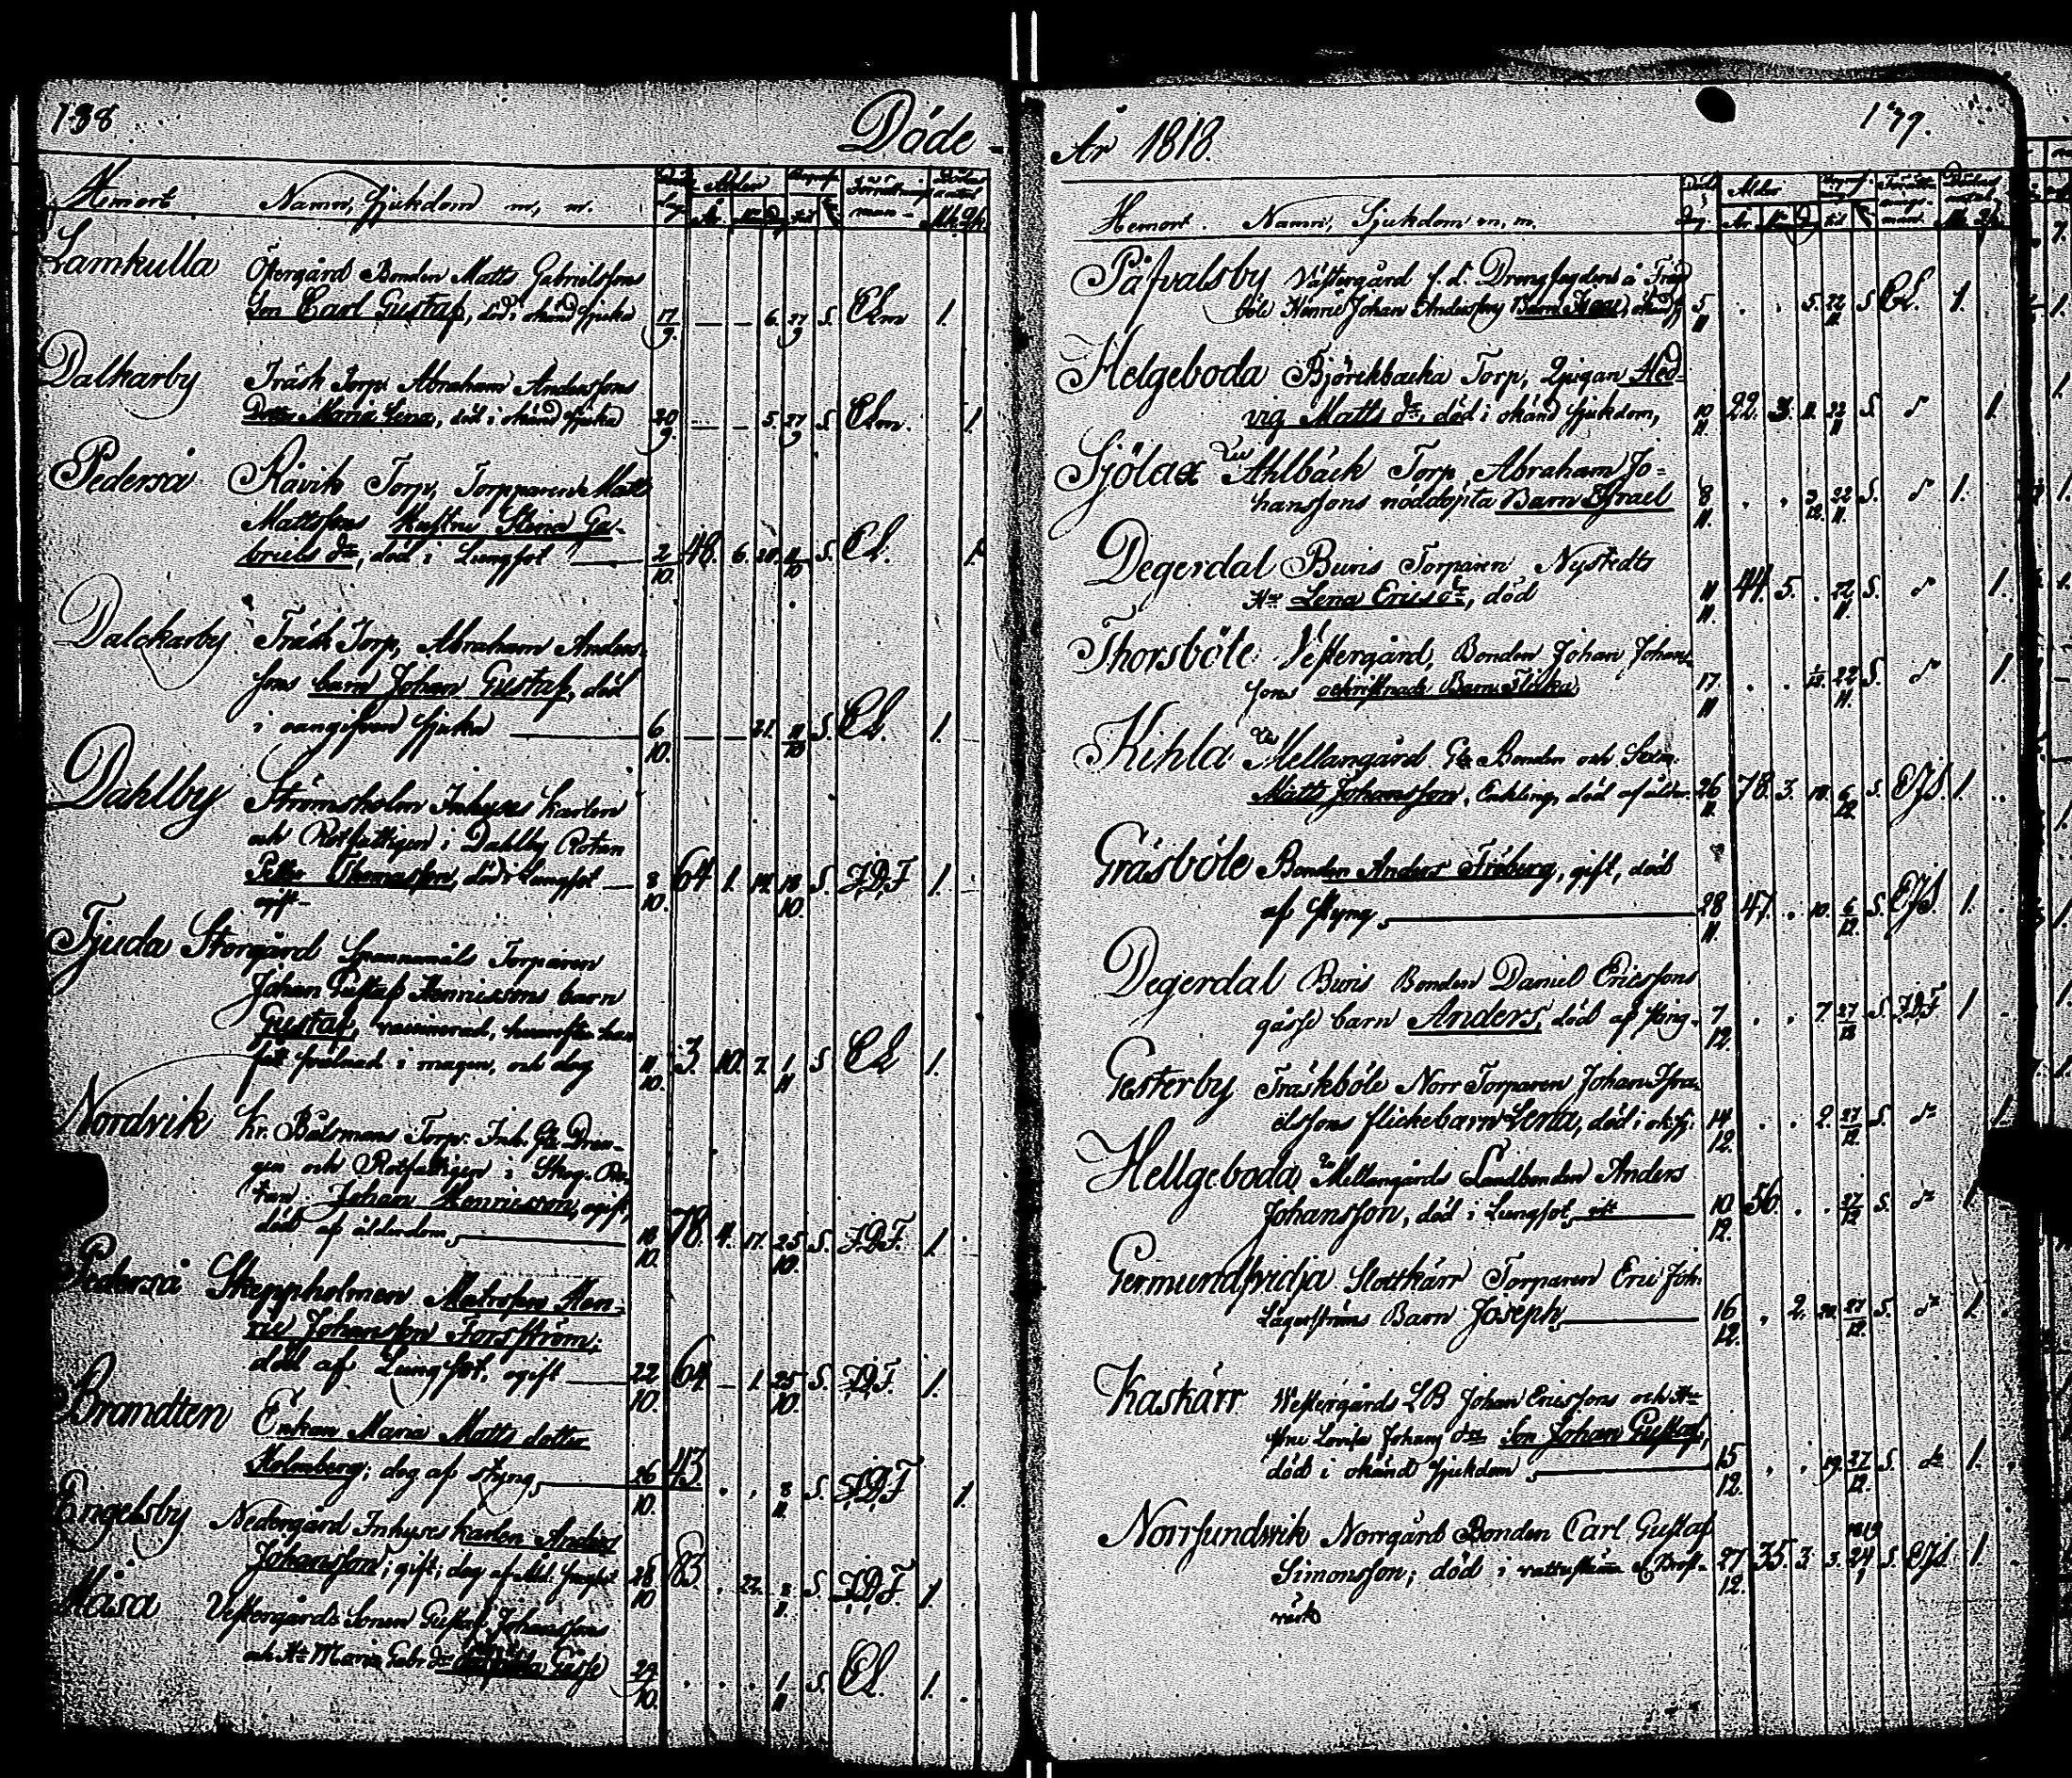 138
Döde -
Hemort Namn, Sjukdom m, m.
Lamkulla Östergård Bonden Matts Gabrielssons
Son Carl Gustaf, död i okänd sjuka 17/9. — — 6. 27/9 S. CLm 1.
Dalkarby Träsk Torp Abraham Anderssons
Dotter Maria Lena, död i okänd sjuka 20/9. — — 5. 27/9 S. CLm. 1.
Pederså Råvik Torp, Torpparen Matts
Mattssons Hustru Stina Ga-
briels dr, död i Lungsot 2/10. 48. 6. 28. 11/10 S. CL. 1.
Dalckarby Träsk Torp, Abraham Anders-
sons barn Johan Gustaf, död
i oangifven sjuka 6/10. — — 21. 11/10 S. CL. 1.
Dahlby Strömsholm Inhyses karlen
och Rotfattigen i Dahlby Rotan
Petter Thomasson, död i Lungsot 8/10. 64. 1. 14. 18/10. S. J.D.F 1.
ogift -
Tjuda Storgård Spannmåls Torparen
Johan Gustaf Henricssons barn
Gustaf, vaccinerad,
i magen, och dog 11/10. 3. 10. 7. 1/11 S CL 1.
Nordvik Kr. Båtsmans Torp. Inh. Gl. Dren-
gen och Rotfattigen i Skog. Ro-
tan Johan Henricsson, ogift,
död af ålderdom, 18/10. 78. 4. 17. 25/10. S. J.D.F. 1.
Pederså Skeppholmen Matrosen Hen-
ric Johansson Forsström;
död af Lungsot, ogift 22/10. 64. — 1. 25/10. S. J.D.F. 1.
Brandten Enkan Maria Matts dotter
Holmberg; dog af styng, 26/10. 43. . , 8/11. S. J.D.F 1.
Engelsby Nedergård Inhyses karlen Anders
Johansson; gift; dog af 28/10 83. . 22. 8/11. S. J.D.F 1.
Måsa Vestergårds Sonen Gustaf Johanssons
och Ha Maria Gabr. dr Gåsse 29/10. . . . 1/11 S. CL. 1.
År 1818.
139.
Hemort. Namn, Sjukdom m, m.
Påfvalsby Västergård f.d. Drengfogden å Träsk-
böle Henric Johan Anderssons Barn 5/11 . . 5. 22/11. S CL. 1.
Helgeboda Björckbacka Torp, Pigan Hed-
vig Matts dr, död i okänd sjukdom, 10/11. 22. 3. 11. 22/11 S. 1.
Sjölax Ahlbäck Torp, Abraham Jo-
hanssons nöddöpta Barn Israel 8/11. . . 22/11. S. 1.
Degerdal Buris Torparen Nystedts
Hu Lena Erics dr, död 11/11. 44. 5. . 22/11. S. 1.
Thorsböle Vestergård, Bonden Johan Johans-
sons Barn Flicka 17/11 . . 22/11. S. 1.
Kihla Mellangård Gl. Bonden och Sexm.
Matts Johansson, Enkling, död af ålder. 26/11. 78. 3. 18. 6/12 S. 1.
Gräsböle Bonden Anders Fröberg, gift, död
af styng, 28/11. 47. . 10. 6/12. S. 1.
Degerdal Buris Bonden Daniel Ericssons
gåsse barn Anders, död af sting. 7/12. . . 7. 27/12 S. J.D.F 1.
Gesterby Träskböle Norr Torparen Johan Isra-
elssons flickebarn Lena, död i ok. sj. 14/12. . . 2. 27/12. S. do 1.
Hellgeboda Mellangårds Landbonden Anders
Johansson, död i Lungsot, gift 10/12. 56. . . 27/12 S. do 1.
Germundsvidja Slottkärr Torparen Eric Joh:
Lägerströms Barn Joseph, 16/12. , 2. 20. 27/12. S. do 1.
Kaskärr Westergårds LB Johan Ericssons och Hu-
stru Lovisa Johans dr Son Johan Gustaf,
död i okänd sjukdom, 15/12. , , 19. 27/12. S. do 1.
Norrsundsvik Norrgård Bonden Carl Gustaf
Simonsson; död i & Bröst- 27/12. 35. 3. 3. 1819 24/1 S. 1.
värk